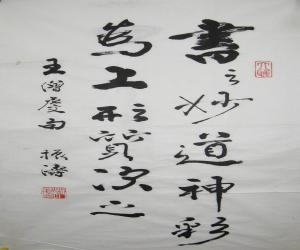 書之妙道神彩
為上形質次之
王僧虔句 振濤